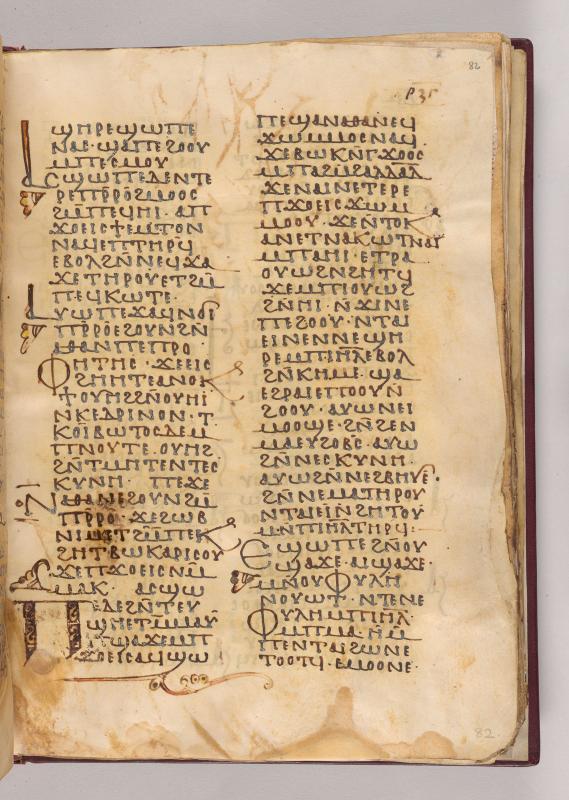 ⲣϥⲅ
ϣⲏⲣⲉϣⲱⲡⲉ
ⲛⲁⲥ·ϣⲁⲡⲉϩⲟⲟⲩ
ⲙⲡⲉⲥⲙⲟⲩ
ⲁⲥϣⲱⲡⲉⲇⲉⲛⲧⲉ
ⲣⲉⲡⲣ̅ⲣⲟϩⲙⲟⲟⲥ
ϩⲙ̅ⲡⲉϥⲏⲓ· ⲁⲡ
ϫⲟⲉⲓⲥϯⲉⲙⲧⲟⲛ
ⲛⲁϥⲉⲡⲧⲏⲣϥ
ⲉⲃⲟⲗϩⲛ̅ⲛⲉϥϫⲁ
ϫⲉⲧⲏⲣⲟⲩⲉⲧϩⲙ̅
ⲡⲉϥⲕⲱⲧⲉ·
ⲁⲩⲱⲡⲉϫⲁϥⲛϭⲓ
ⲡⲣ̅ⲣⲟⲉϩⲟⲩⲛϩⲛ̅
ⲛⲁⲑⲁⲛⲡⲉⲡⲣⲟ
ⲫⲏⲧⲏⲥ·ϫⲉⲉⲓⲥ
ϩⲏⲏⲧⲉⲁⲛⲟⲕ
ϯⲟⲩⲏϩϩⲛⲟⲩⲏⲓ
ⲛⲕⲉⲇⲣⲓⲛⲟⲛ·ⲧ
ⲕⲟⲓⲃⲱⲧⲟⲥⲇⲉⲙ
ⲡⲛⲟⲩⲧⲉ·ⲟⲩⲏϩ
ϩⲛ̅ⲧⲙⲏⲧⲉⲛⲧⲉⲥ
ⲕⲩⲛⲏ· ⲡⲉϫⲉ
ⲛⲁⲑⲁⲛⲉϩⲟⲩⲛϩⲙ̅
ⲡⲣ̅ⲣⲟ·ϫⲉϩⲱⲃ
ⲛⲓⲙⲉⲧϩⲙⲡⲉⲕ
ϩⲏⲧⲃⲱⲕⲁⲣⲓⲥⲟⲩ
ϫⲉⲡϫⲟⲉⲓⲥⲛⲙ̅
ⲙⲁⲕ· ⲁⲥϣⲱ
ⲡⲉⲇⲉϩⲛ̅ⲧⲉⲩ
ϣⲏⲉⲧⲙⲙⲁⲩ
ⲁⲡϣⲁϫⲉⲙⲡ
ϫⲟⲉⲓⲥⲁϥϣⲱ
ⲡⲉϣⲁⲛⲁⲑⲁⲛⲉϥ
ϫⲱⲙⲙⲟⲥⲛⲁϥ
ϫⲉⲃⲱⲕⲛⲅ̅ϫⲟⲟⲥ
ⲙⲡⲁϩⲙ̅ϩⲁⲗⲇⲁⲇ
ϫⲉⲛⲁⲓⲛⲉⲧⲉⲣⲉ
ⲡϫⲟⲉⲓⲥϫⲱⲙ
ⲙⲟⲟⲩ·ϫⲉⲛⲧⲟⲕ
ⲁⲛⲉⲧⲛⲁⲕⲱⲧⲛⲁⲓ
ⲙⲡⲁⲏⲓ·ⲉⲧⲣⲁ
ⲟⲩⲱϩⲛϩⲏⲧϥ
ϫⲉⲙⲡⲓⲟⲩⲱϩ
ϩⲛ̅ⲏⲓ·ⲛ̅ϫⲓⲛⲉ
ⲡⲉϩⲟⲟⲩ·ⲛⲧⲁⲓ
ⲉⲓⲛⲉⲛⲛⲉϣⲏ
ⲣⲉⲙⲡⲓⲏ̅ⲗ̅ⲉⲃⲟⲗ
ϩⲛ̅ⲕⲏⲙⲉ·ϣⲁ
ⲉϩⲣⲁⲓⲉⲡⲟⲟⲩⲛ̅
ϩⲟⲟⲩ·ⲁⲩⲱⲛⲉⲓ
ⲙⲟⲟϣⲉ·ϩⲛ̅ϩⲉⲛ
ⲙⲁⲉⲩϩⲟⲃⲥ̅·ⲁⲩⲱ
ϩⲛ̅ⲛⲉⲥⲕⲩⲛⲏ·
ⲁⲩⲱϩⲛ̅ⲛⲉϩⲃⲏⲩⲉ·
ϩⲛ̅ⲛⲉⲙⲁⲧⲏⲣⲟⲩ
ⲛⲧⲁⲓⲉⲓⲛ̅ϩⲏⲧⲟⲩ
ⲙⲛ̅ⲡⲓⲏ̅ⲗ̅ⲧⲏⲣϥ:
ⲉϣⲱⲡⲉϩⲛⲟⲩ
ϣⲁϫⲉ·ⲁⲓϣⲁϫⲉ·
ⲙⲛ̅ⲟⲩⲫⲩⲗⲏ
ⲛⲟⲩⲱⲧ·ⲛⲧⲉⲛⲉ
ⲫⲩⲗⲏⲙⲡⲓⲏ̅ⲗ̅
ⲙ̅ⲡⲙⲁ·ⲏⲙ
ⲡⲉⲛⲧⲁⲓϩⲱⲛⲉ
ⲧⲟⲟⲧϥ·ⲉⲙⲟⲟⲛⲉ·
82
82